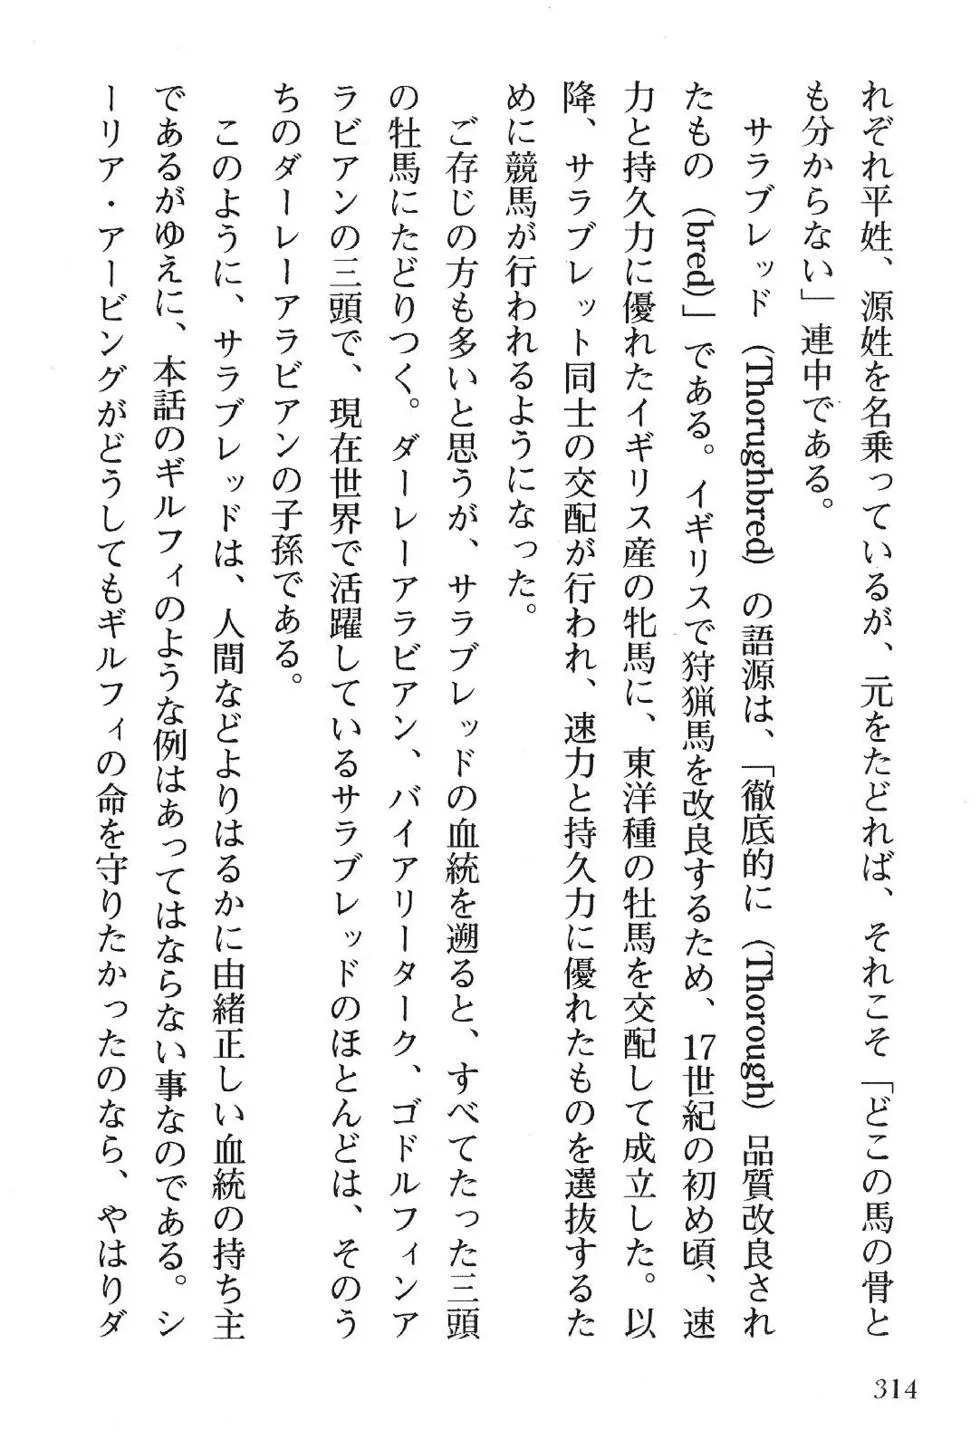 れぞれ平姓、源姓を名乗っているが、元をたどれば、それこそ「どこの馬の骨と
も分からない」連中である。
サラブレッド（Thorughbred）の語源は、「徹底的に（Thorough）品質改良され
たもの（bred）」である。イギリスで狩猟馬を改良するため、17世紀の初め頃、速
力と持久力に優れたイギリス産の牝馬に、東洋種の牡馬を交配して成立した。以
降、サラブレット同士の交配が行われ、速力と持久力に優れたものを選抜するた
めに競馬が行われるようになった。
ご存じの方も多いと思うが、サラブレッドの血統を遡ると、すべてたった三頭
の牡馬にたどりつく。ダーレーアラビアン、バイアリーターク、ゴドルフィンア
ラビアンの三頭で、現在世界で活躍しているサラブレッドのほとんどは、そのう
ちのダーレーアラビアンの子孫である。
このように、サラブレッドは、人間などよりはるかに由緒正しい血統の持ち主
であるがゆえに、本話のギルフィのような例はあってはならない事なのである。シ
ーリア・アービングがどうしてもギルフィの命を守りたかったのなら、やはりダ
314